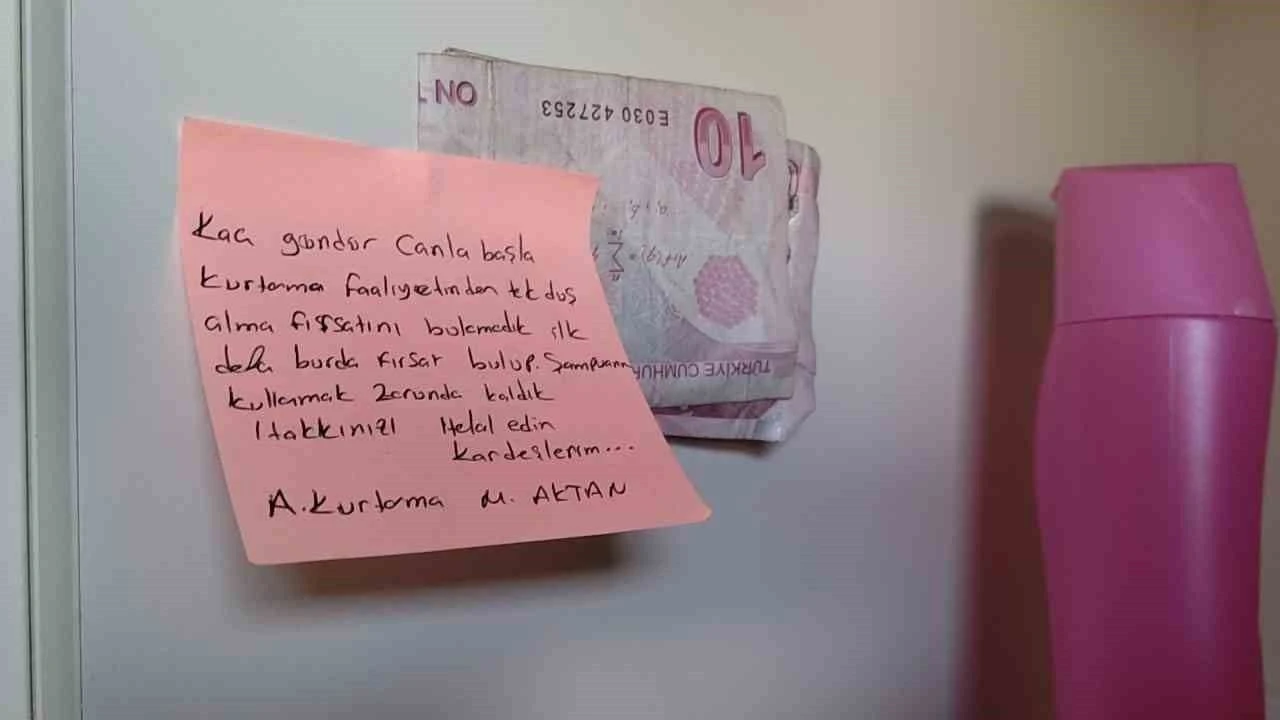 Kaç gündür Canla başla
kurtarma faaliyetinden tek duş
alma fırsatını bulamadık ilk
defa burda fırsat bulup. Şampuanı
kullanmak zorunda kaldık
Hakkınızı Helal edin
kardeşlerim...
A.Kurtarma M. AKTAN
ON
E030 427253
10
TÜRKİYE CUMHU